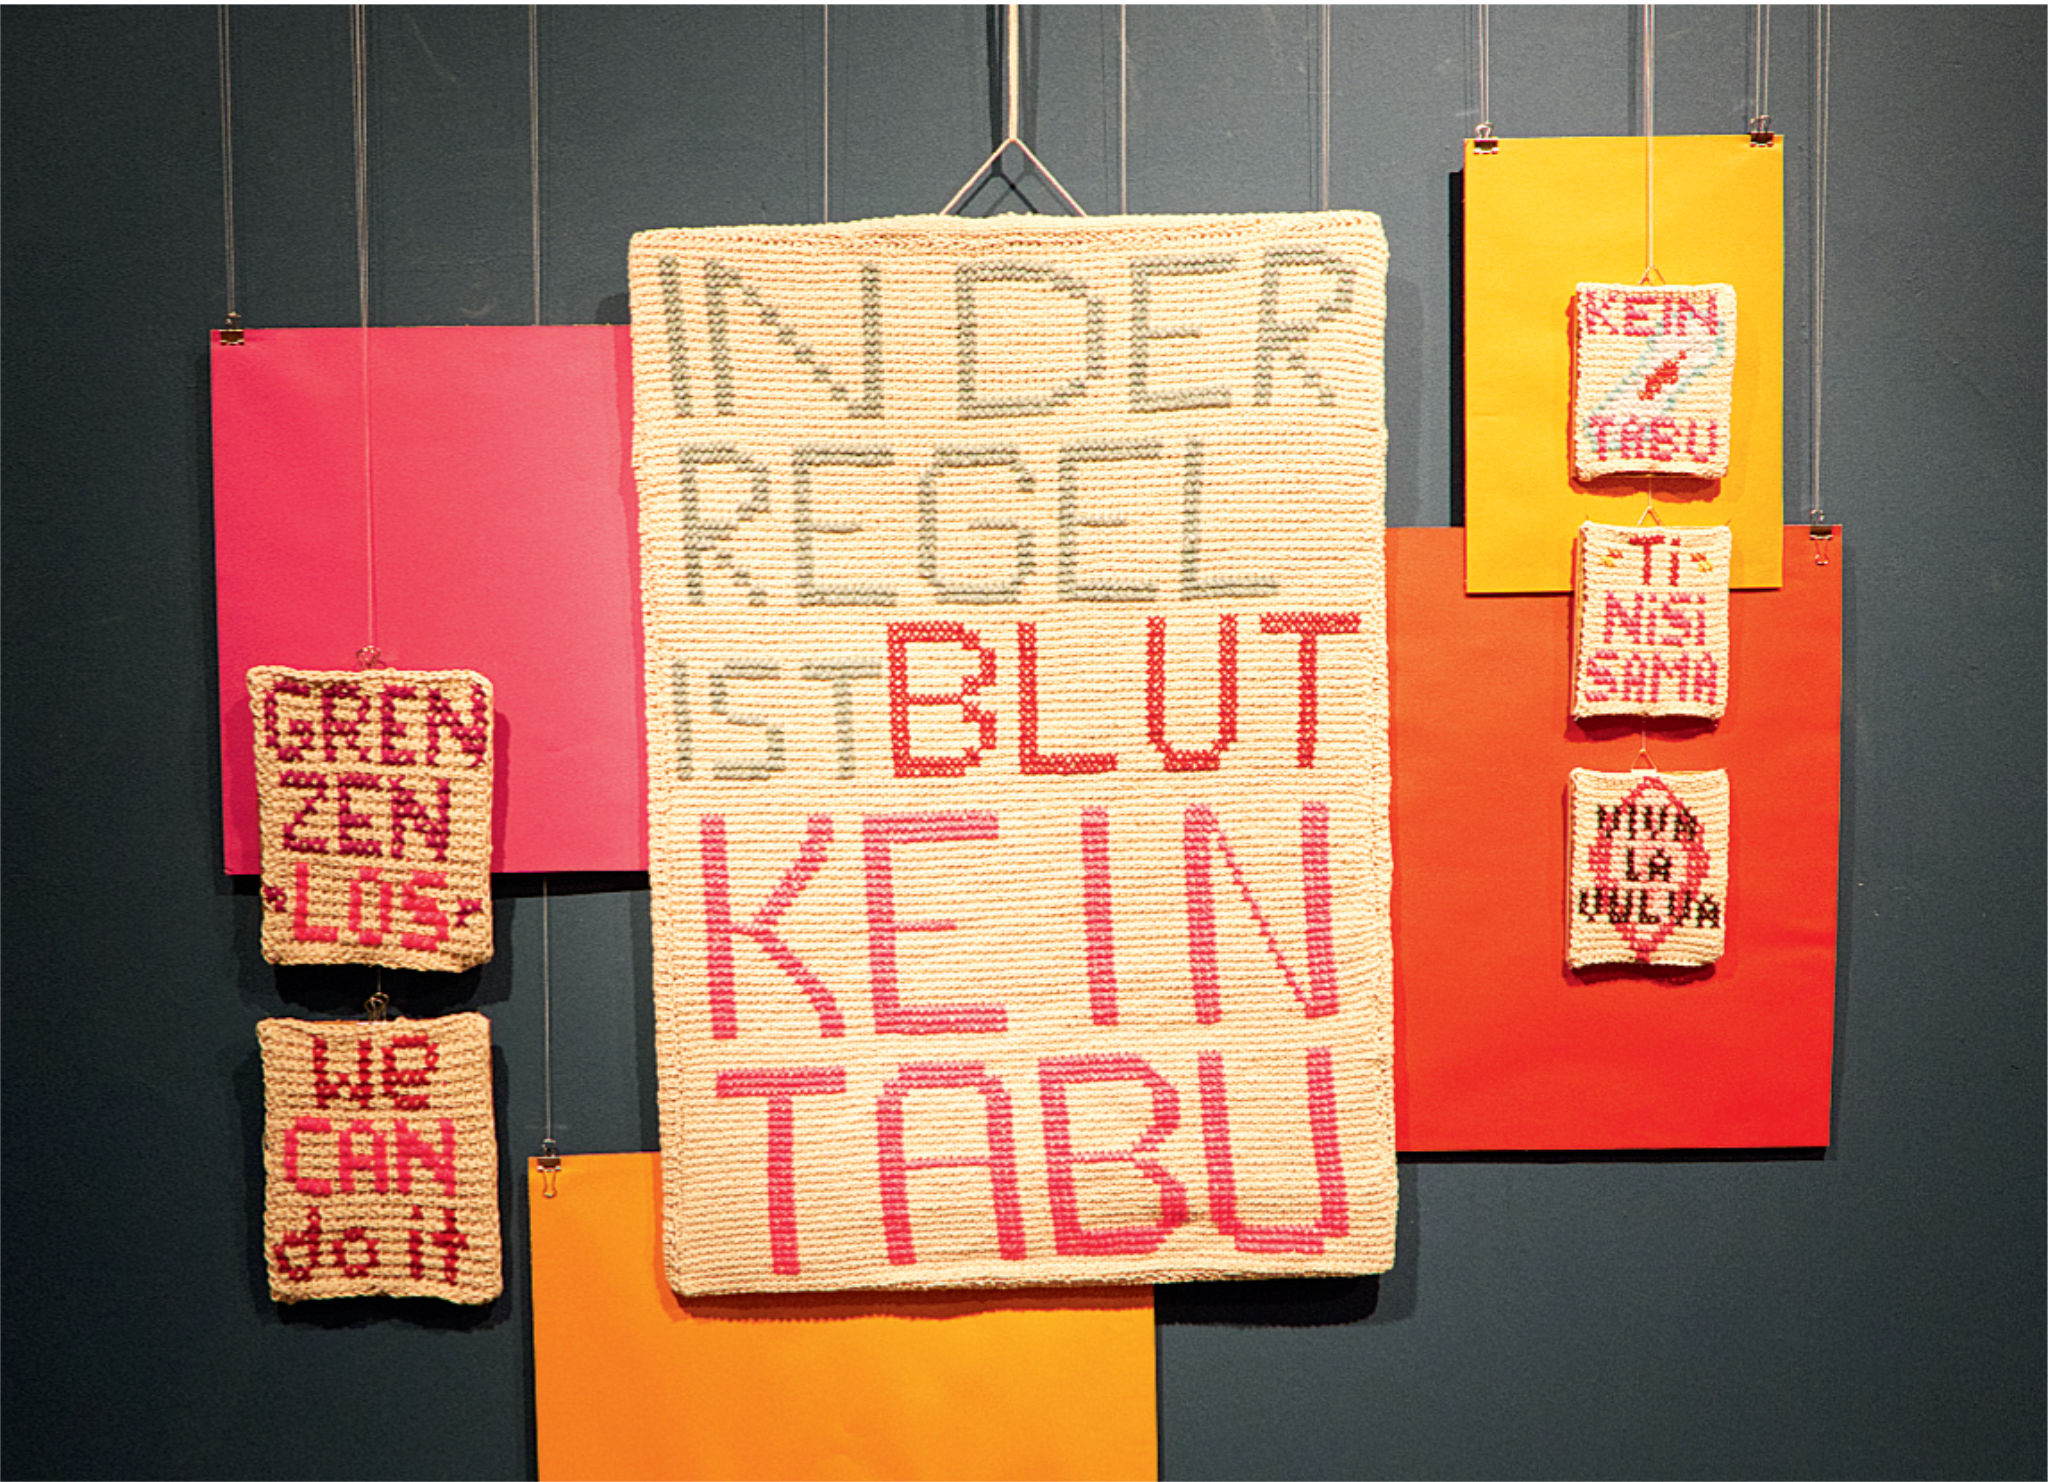 GREN
ZEN
LOS
We
CAN
do it
IN DER
REGEL
IST BLUT
KEIN
TABU
KEIN
TABU
Ti
NiSi
SAMA
VIVA
LA
VULVA